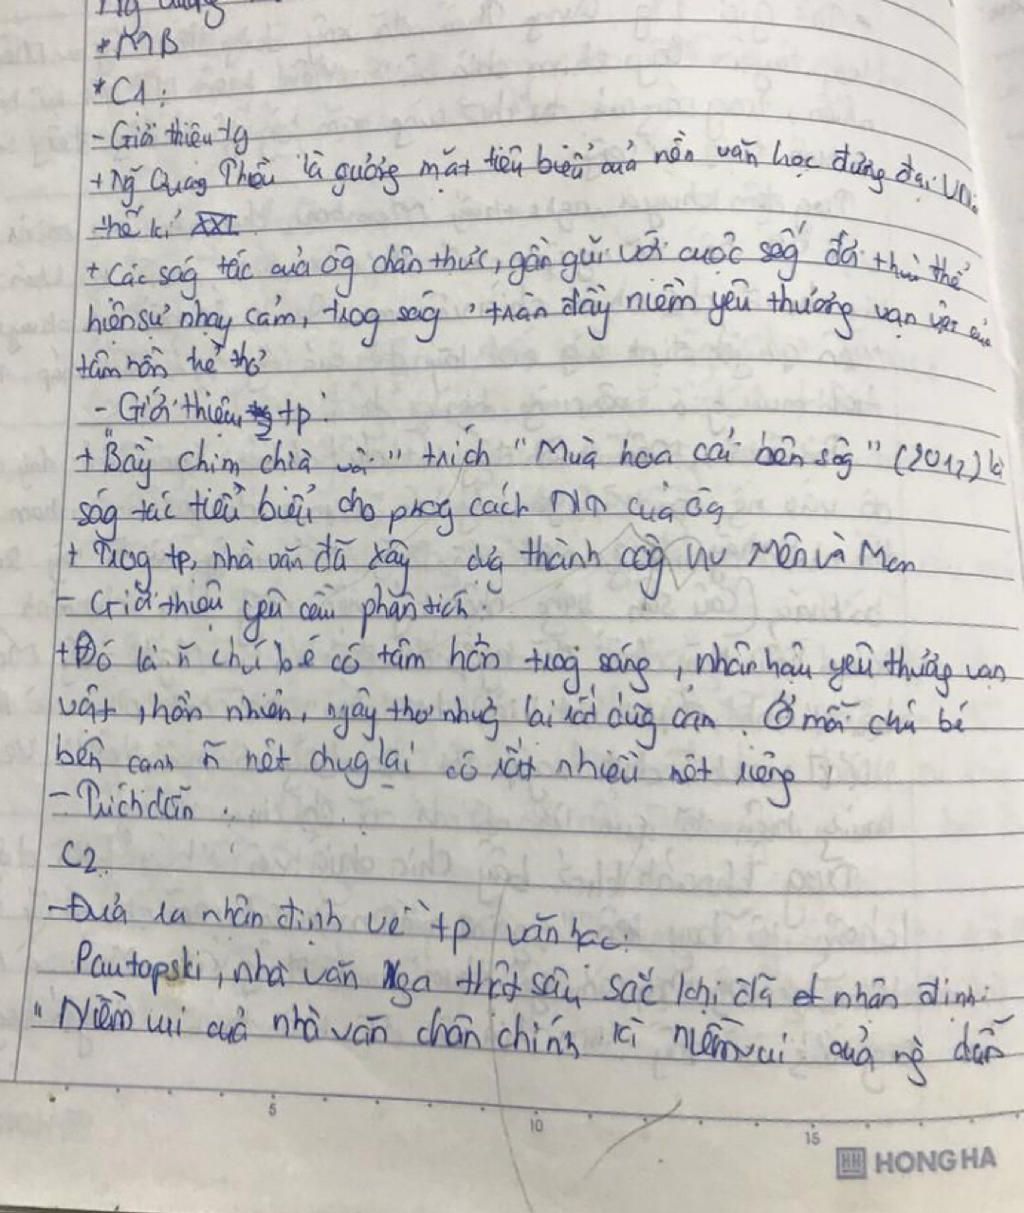 * MB
* C1:
- Giới thiệu tg
+ Ng Quag Thiều là gương mặt tiêu biểu của nền văn học đương đại VN
thế kỉ XXI.
+ Cácság tác của ôg chân thực, gần gũi với cuộc sốg đời thườ thể
hiện sự nhạy cảm, trog ság, tràn đầy niềm yêu thương vạn vật của
tâm hồn trẻ thơ
- Giới thiệu tp:
+ "Bầy chim chìa vôi" trích "Mùa hoa cải bên sôg" (2012) là
ság tác tiêu biểu cho phog cách NT của ôg
+ Trog tp, nhà văn đã xây dựg thành côg nv Mên và Mon
- Giới thiệu yêu cầu phân tích:
+ Đó là n~ chú bé có tâm hồn trog sáng, nhân hậu yêu thương vạn
vật, hồn nhiên, ngây thơ nhưg lại rất dũg cảm. Ở mỗi chú bé
bên cạnh n~ nét chug lại có rất nhiều nét riêng
- Trích dẫn
C2.
- Đưa ra nhận định về tp văn học:
Pautopski, nhà văn Nga thật sâu sắc khi đã nhận định:
"Niềm vui của nhà văn chân chính là niềm vui của ng dẫn
5
10
15
HH HONG HA